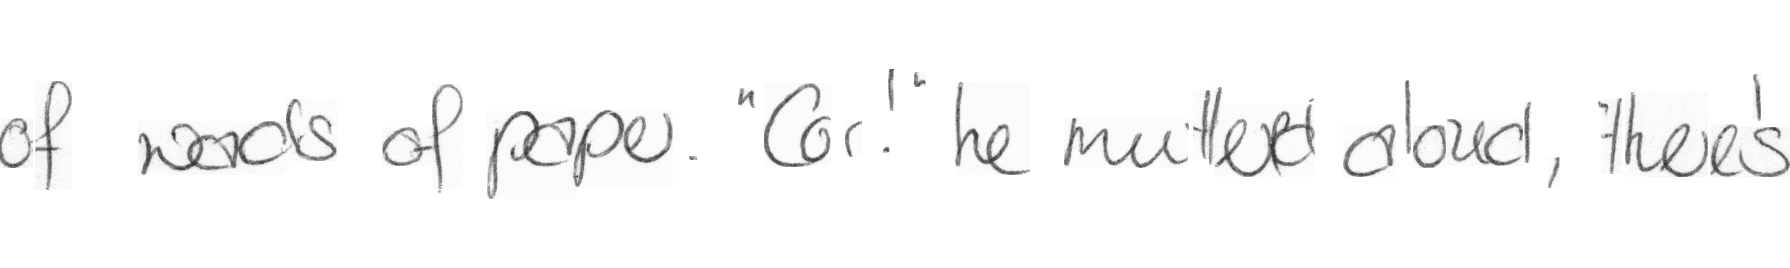 of wads of paper. "Cor!" he muttered aloud, there's